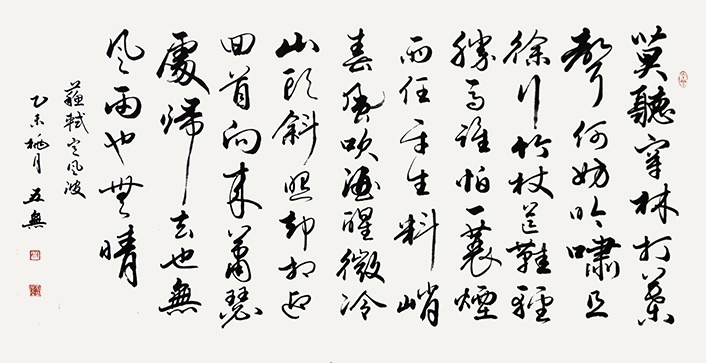 莫聽穿林打葉
聲何妨吟嘯且
徐行竹杖芒鞋輕
勝馬誰怕一蓑煙
雨任平生料峭
春風吹酒醒微冷
山頭斜照却相迎
回首向來蕭瑟
處歸去也無
風雨也無晴
蘇軾定風波
乙未桃月